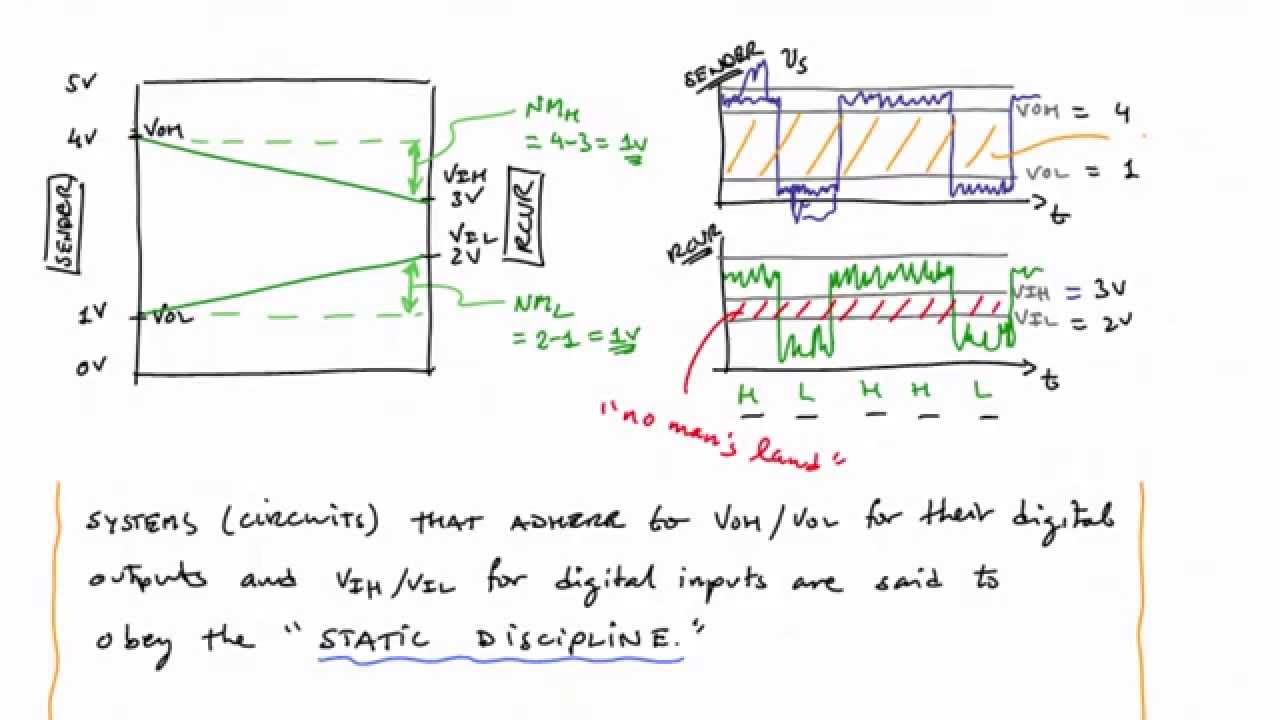 5V
4V
VOH
SENDER
1V
VOL
0V
NMH
= 4-3 = 1V
VIH
3V
VIL
2V
RCVR
NML
= 2-1 = 1V
SENDER
VS
VOH = 4
VOL = 1
t
RCVR
VIH = 3V
VIL = 2V
t
H L H H L
"no man's land"
SYSTEMS (CIRCUITS) THAT ADHERE to VOH/VOL for their digital
outputs and VIH/VIL for digital inputs are said to
obey the "STATIC DISCIPLINE."